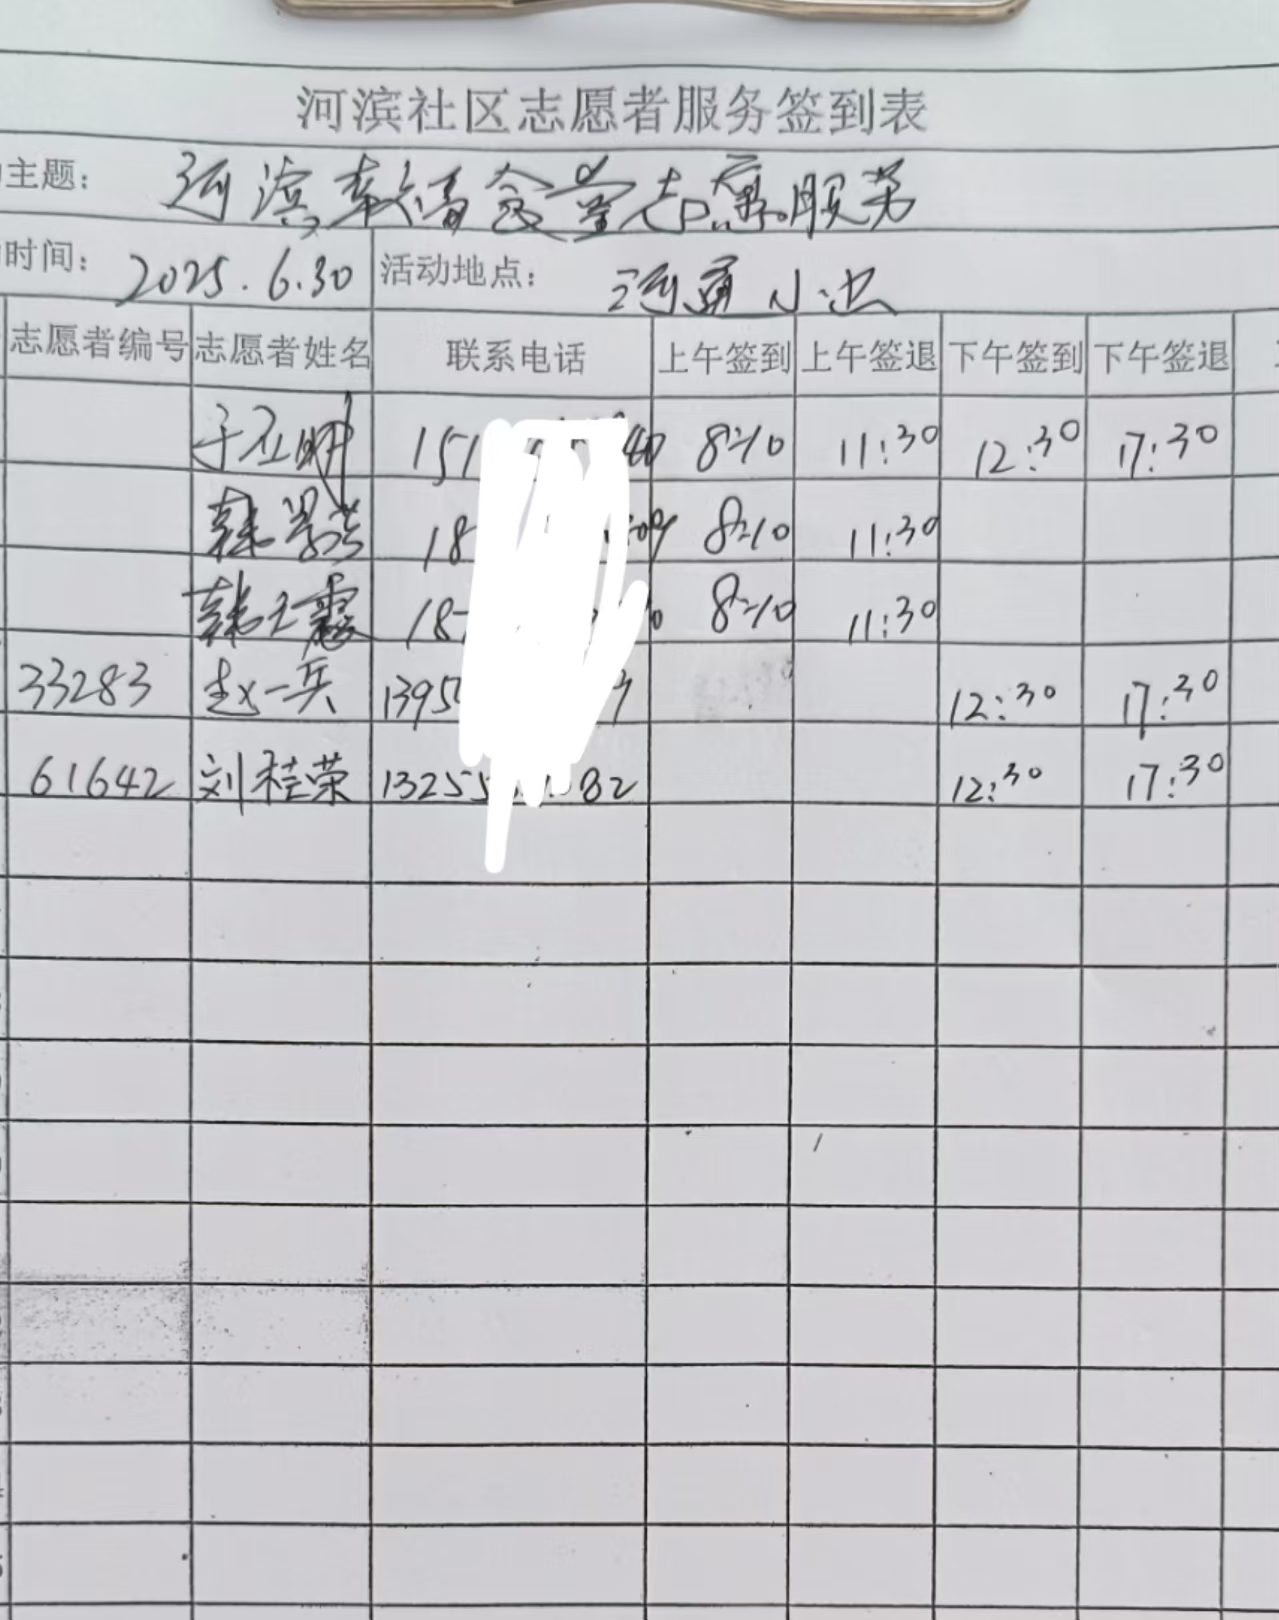 河滨社区志愿者服务签到表
主题： 河滨幸福食堂志愿服务
时间： 2025.6.30 活动地点： 河滨小区
志愿者编号 志愿者姓名 联系电话 上午签到 上午签退 下午签到 下午签退
151 40 8:10 11:30 12:30 17:30
韩 18 09 8:10 11:30
韩 18 8:10 11:30
33283 赵一兵 1395 12:30 17:30
61642 刘桂荣 13255 82 12:30 17:30